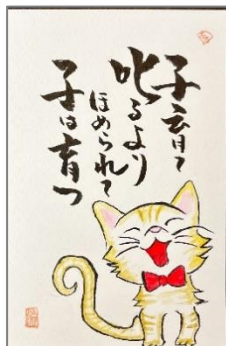 子育て
叱るより
ほめられて
子は育つ